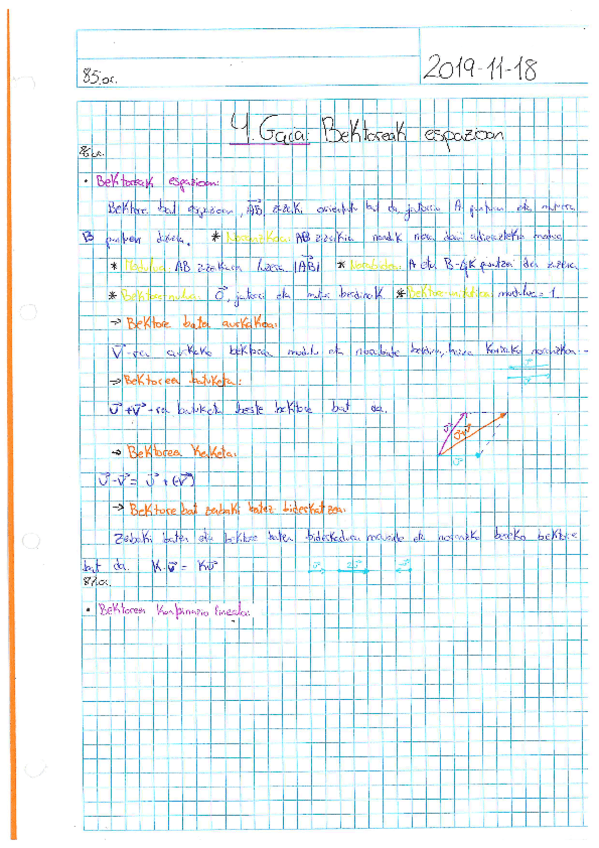 85.or.
2019-11-18
4. Gaia: Bektoreak espazioan
86.or.
• Bektoreak espazioan:
Bektore bat espazioan, AB⃗ zuzenki orientatu bat da, jatorria A puntuan eta muturra
B puntuan dituena. * Norantzkoa: AB zuzenkia nondik nora doan adierazteko modua
* Modulua: AB zuzenkiaren luzera |AB⃗| * Norabidea: A eta B-tik pasatzen den zuzena
* Bektore nulua: O⃗, jatorri eta mutur berdinak * Bektore unitarioa: modulua = 1
→ Bektore baten aurkakoa:
V⃗-ren aurkako bektorea modulu eta norabide berdina, baina kontrako norantzkoa: -
→ Bektoreen batuketa:
u⃗ + v⃗-ren batuketa beste bektore bat da.
→ Bektoreen kenketa:
u⃗ - v⃗ = u⃗ + (-v⃗)
→ Bektore bat zenbaki batez biderkatzea:
Zenbaki baten eta bektore baten biderkadura norabide eta norantzko bereko bektore
bat da. K·v⃗ = Kv⃗
87.or.
• Bektoreen konbinazio lineala: